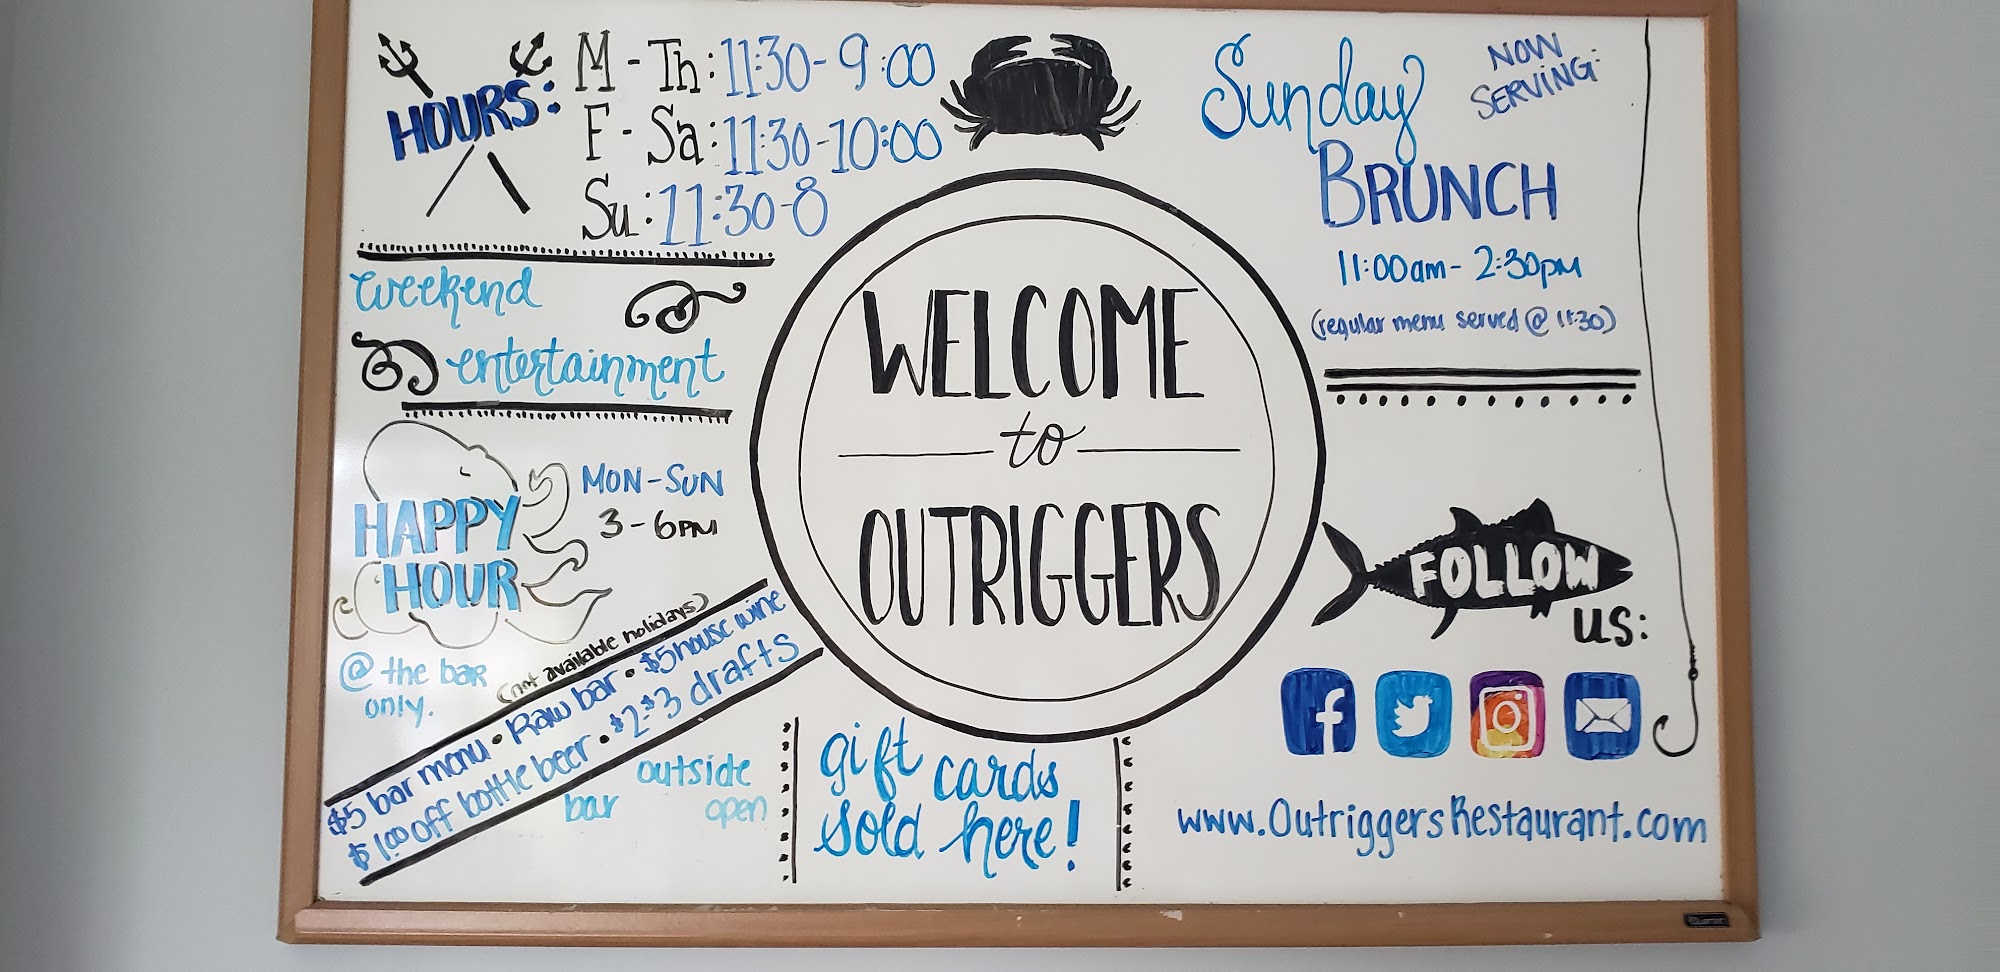 HOURS:
M - Th: 11:30 - 9:00
F - Sa: 11:30 - 10:00
Su: 11:30 - 8
weekend
entertainment
HAPPY
HOUR
MON - SUN
3 - 6PM
@ the bar
only.
(not available holidays)
$5 bar menu • Raw bar • $5 house wine
$1.00 off bottle beer • $2-$3 drafts
outside
bar open
WELCOME
to
OUTRIGGERS
gift cards
sold here!
NOW
SERVING:
Sunday
BRUNCH
11:00am - 2:30pm
(regular menu served @ 11:30)
FOLLOW
US:
f
www.OutriggersRestaurant.com